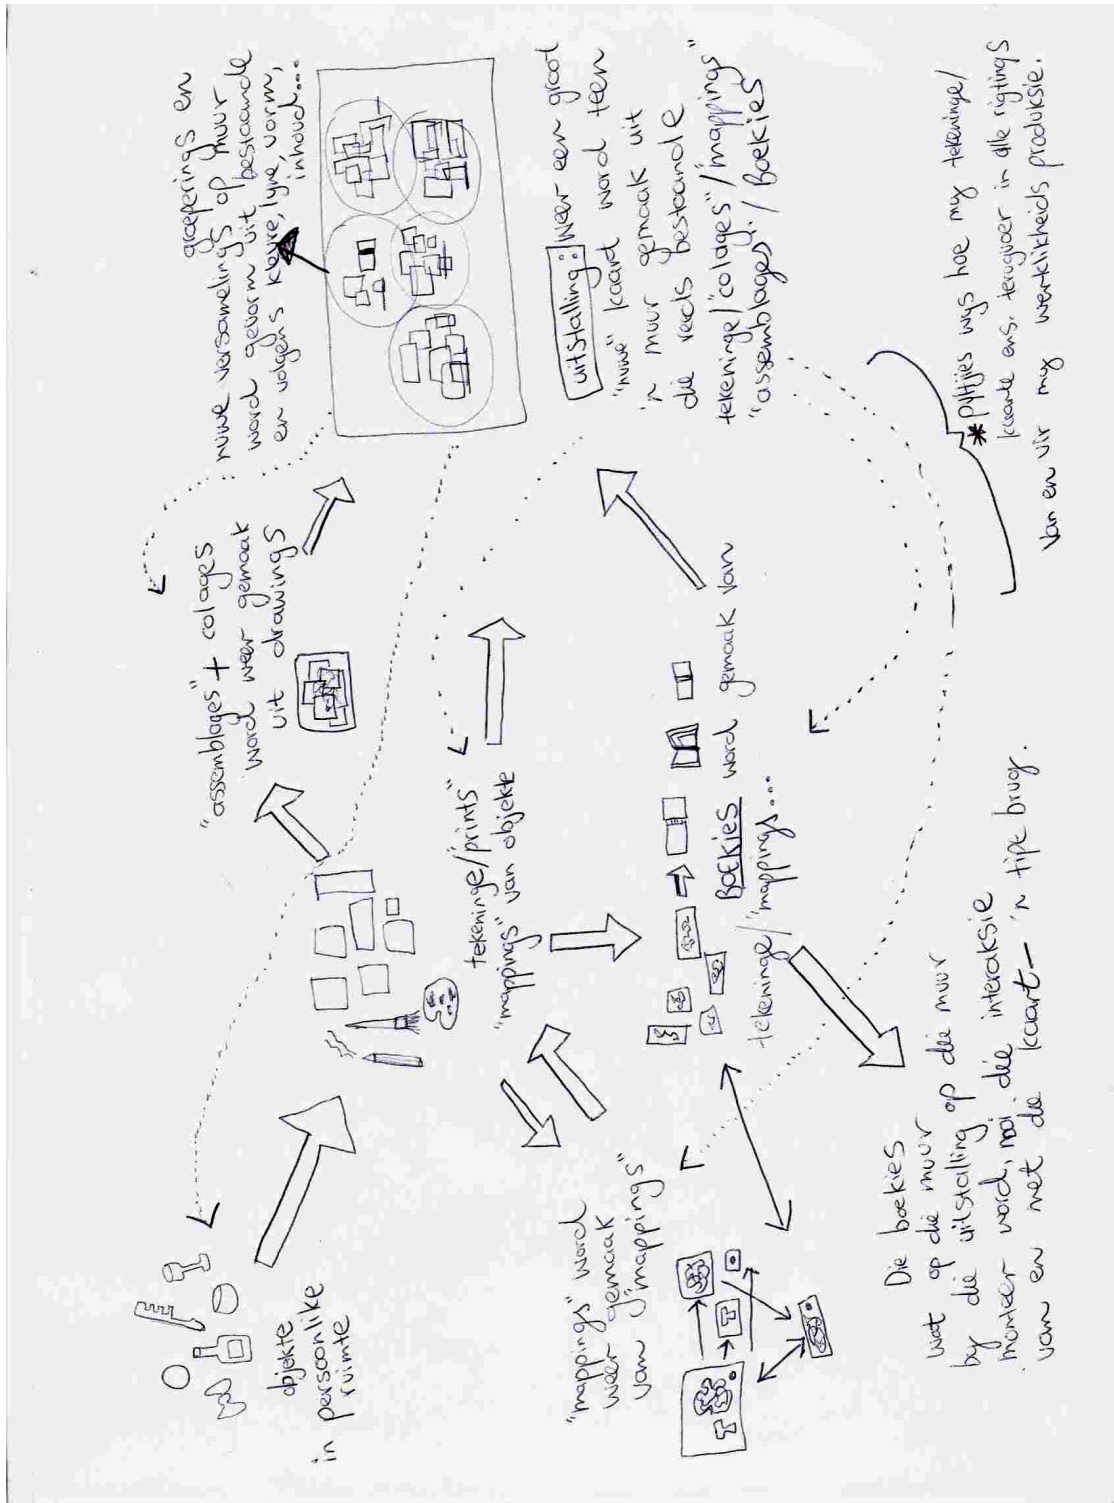 objekte
in persoonlike
ruimte
tekeninge/prints"
"mappings" van objekte
"assemblages" + colages
word weer gemaak
uit drawings
groeperings en
nuwe versamelings op muur
word gevorm uit bestaande
en volgens kleure, lyne, vorm,
inhoud...
uitstalling: Weer een groot
"nuwe" kaart word teen
'n muur gemaak uit
die reeds bestaande
tekeninge/"colages"/"mappings"
"assemblages"/Boekies
"mappings" word
weer gemaak
van "mappings"
BOEKIES word gemaak van
tekeninge/"mappings...
Die boekies
wat op die muur
by die uitstalling op die muur
monteer word, nooi die interaksie
van en met die kaart – 'n tipe brug.
* pyltjies wys hoe my tekeninge/
kaarte ens. terugvoer in alle rigtings
van en vir my werklikheids produksie.